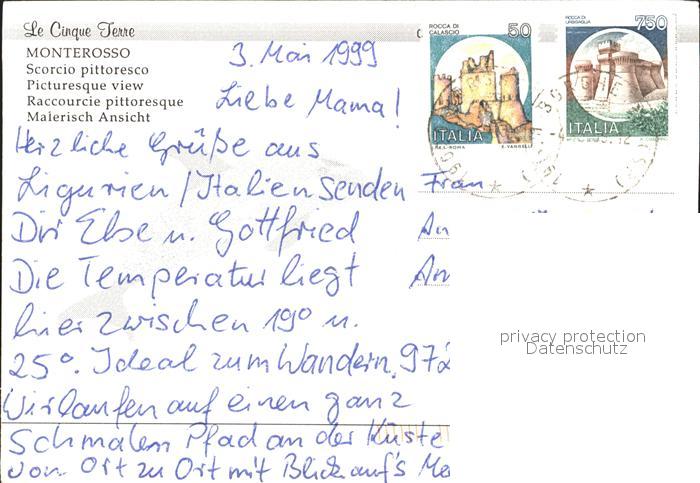 Le Cinque Terre
MONTEROSSO
Scorcio pittoresco
Picturesque view
Raccourcie pittoresque
Malerisch Ansicht
ROCCA DI
CALASCIO
50
ITALIA
I.P.Z.S. ROMA
E. VANGELLI
ROCCA DI
URBISAGLIA
750
ITALIA
3. Mai 1999
Liebe Mama!
Herzliche Grüße aus
Ligurien/Italien senden
Dir Else u. Gottfried
Die Temperatur liegt
hier zwischen 19° u.
25°. Ideal zum Wandern.
Wir laufen auf einen ganz
schmalen Pfad an der Küste
von Ort zu Ort mit Blick auf's Me
Frau
An
An
972
privacy protection
Datenschutz